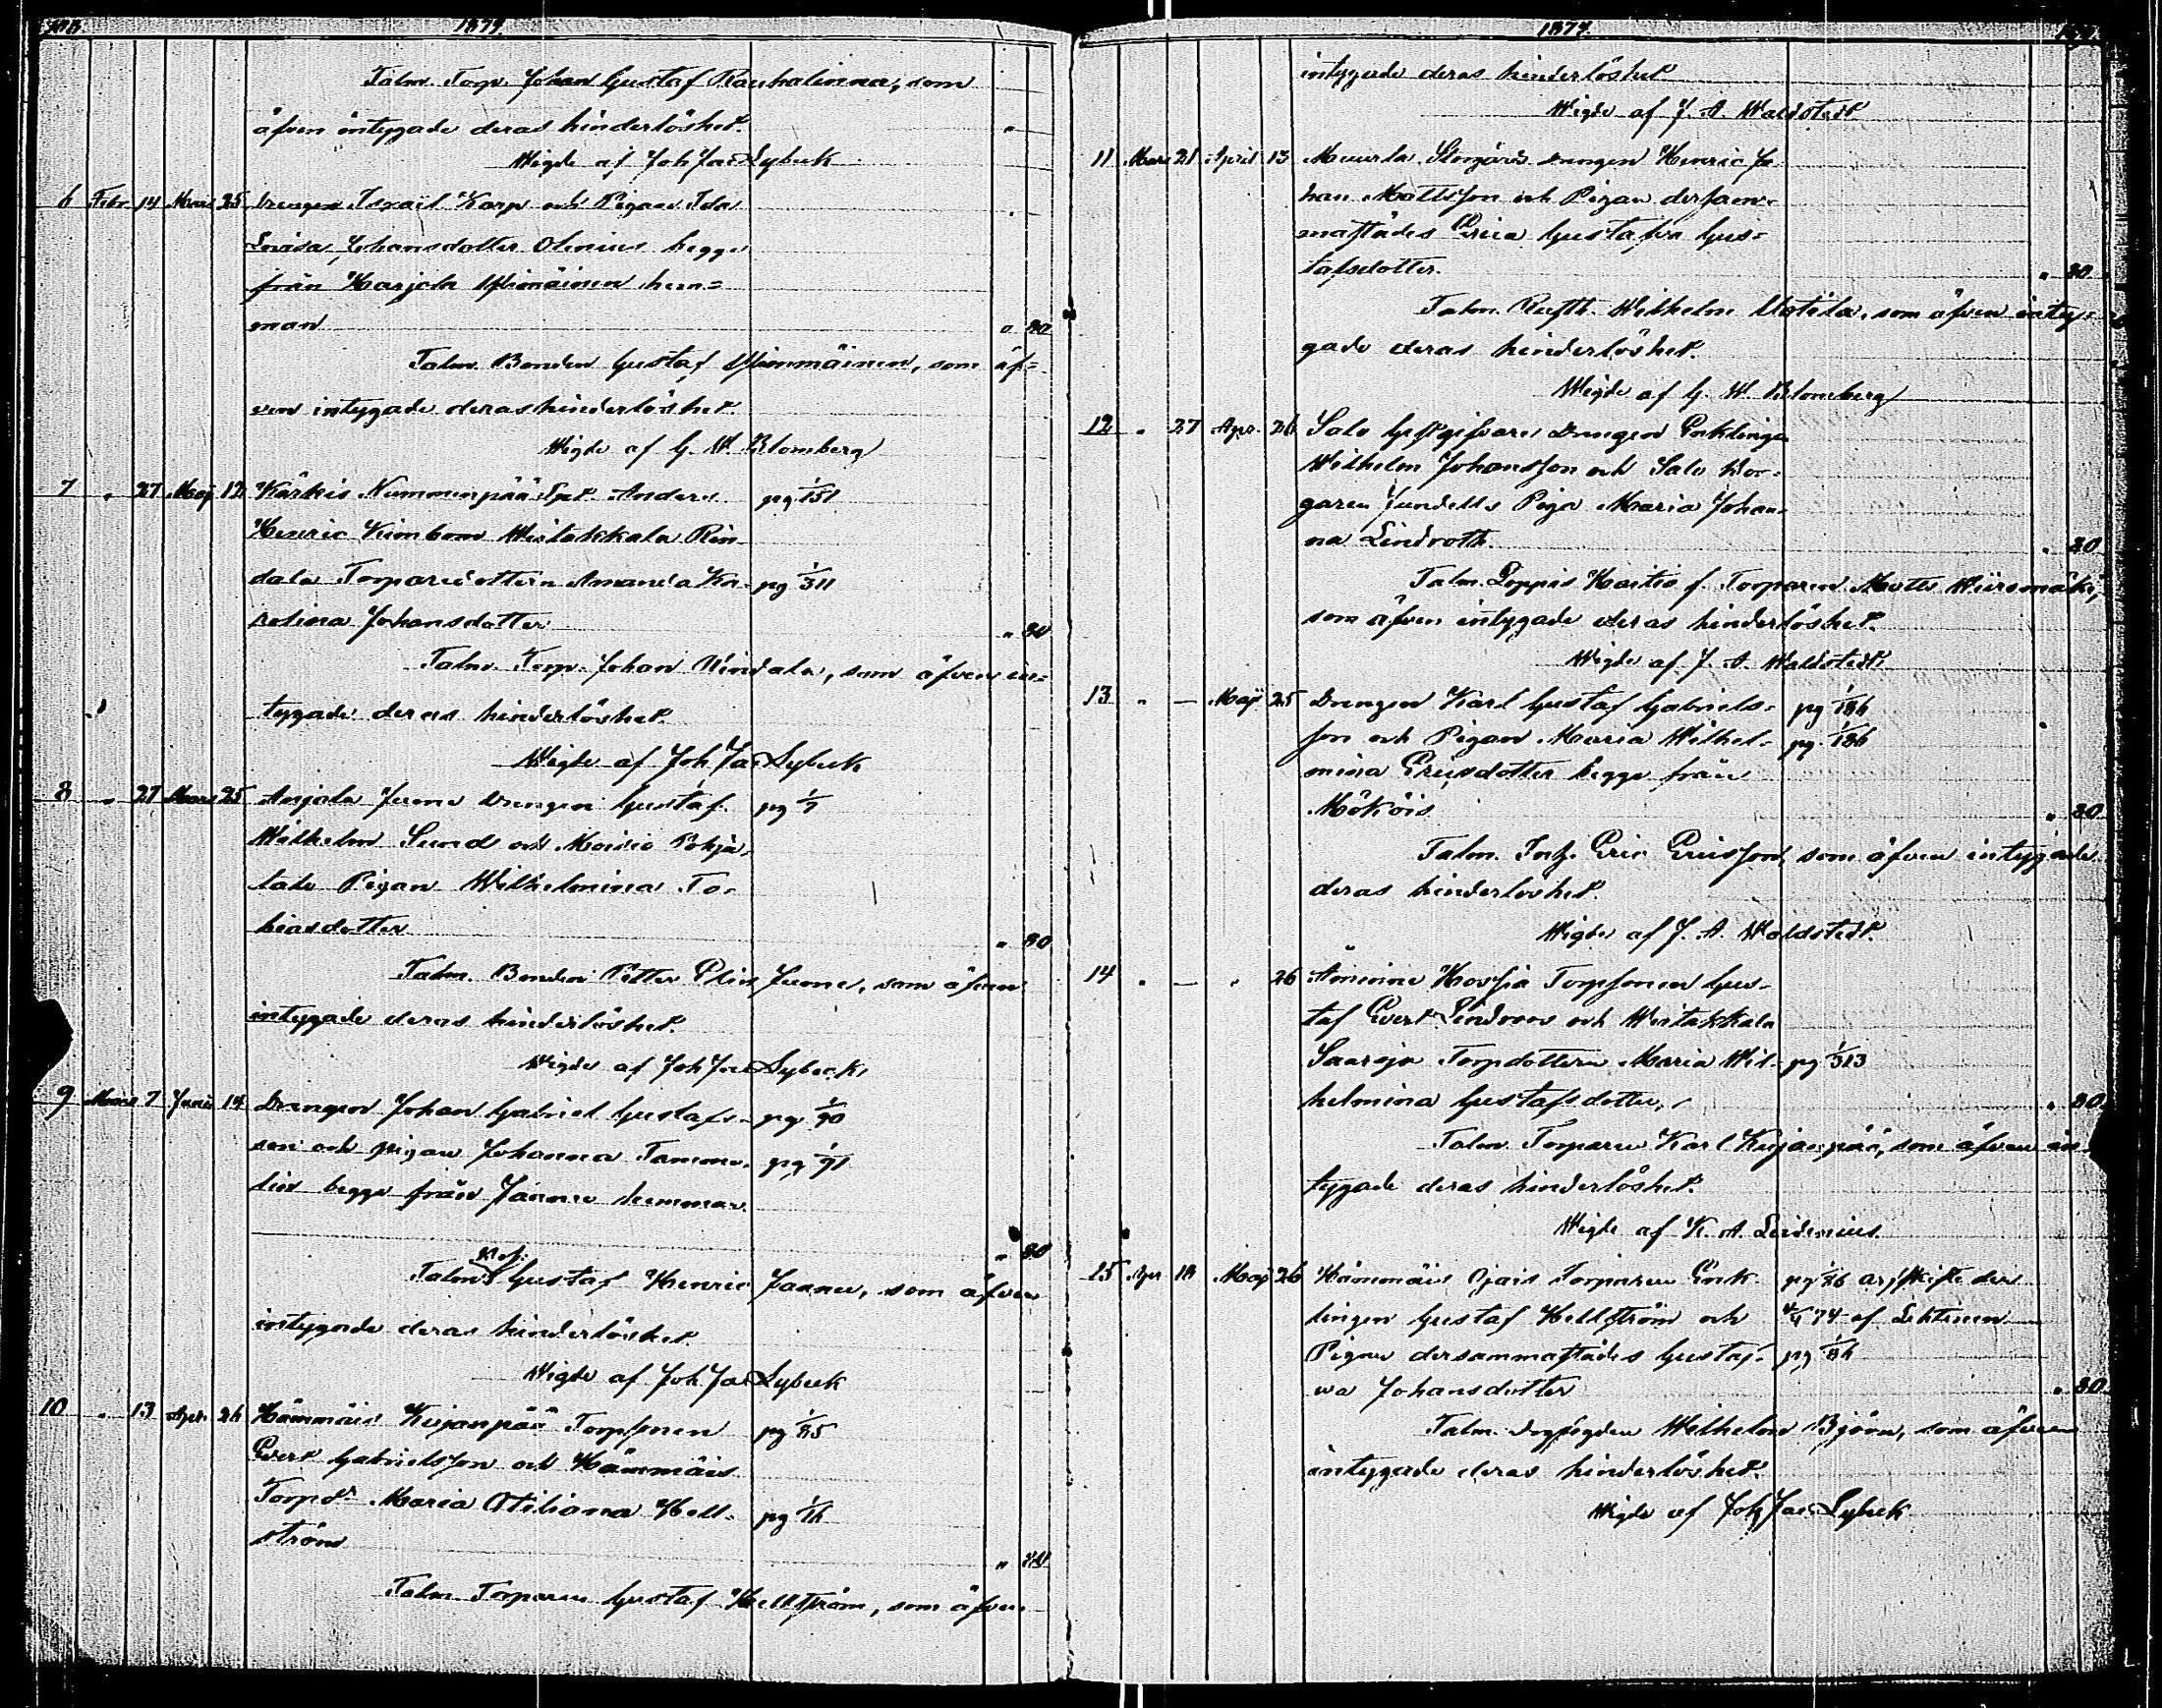 1874
Talm. Torp. Johan Gustaf Rauhalinna, som
äfven intygade deras hinderlöshet. "
Wigde af Joh Jac Lybeck
6 Febr 14 Mars 25 Drengen Israel Karp och Pigan Ida
Lovisa Johansdotter Olenius begge
från Harjola hem=
man " 80
Talm. Bonden Gustaf, som äf=
ven intygade deras hinderlöshet.
Wigde af G. W. Blomberg
7 " 27 Maj 12 Kärkis Nummenpää Anders pg 1/151
Henric Kimbom Wiitakkala Rin-
dala Torparedottern Amanda Ka- pg 1/311
rolina Johansdotter " 80
Talm. Torp. Johan Rindala, som äfven in=
tygade deras hinderlöshet.
Wigde af Joh Jac Lybeck
8 " 27 Mars 25 Anjala Drengen Gustaf pg 1/7
Wilhelm Sund och Moisio Pohja-
talo Pigan Wilhelmina To-
biasdotter " 80
Talm. Bonden Petter, som äfven
intygade deras hinderlöshet.
Wigde af Joh Jac Lybeck
9 Mars 7 Juni 14 Drengen Johan Gabriel Gustafs- pg 1/90
son och pigan Johanna Tamme- pg 1/91
lin begge från Jaanu hemman.
" 80
Talm Gustaf Henric Jaanu, som äfven
intygade deras hinderlöshet.
Wigde af Joh Jac Lybeck
10 " 13 Apr. 26 Hämmäis Kujanpää Torpsonen pg 1/85
Evert Gabrielsson och Hämmäis
Torpdr Maria Otiliana Hell- pg 1/
ström " 80
Talm. Torparen Gustaf Hellström, som äfven
1874
intygade deras hinderlöshet
Wigde af J. A. Waldstedt
11 Mars 21 April 13 Muurla drengen Henric Jo
han Mattsson och Pigan dersam-
mastädes Erica Gustafva Gus=
tafsdotter. " 80
Talm. Wilhelm Uotila, som äfven inty=
gade deras hinderlöshet.
Wigde af G. W. Blomberg
12 " 27 Apr. 26 Salo Gästgifvare Drengen Enklingen
Wilhelm Johansson och Salo Bor-
garen Pigo Maria Johan-
na Lindroth. " 80
Talm. Loppis f. Torparen Matts
som äfven intygade deras hinderlöshet.
Wigde af J. A. Waldstedt
13 " — Maj 25 Drengen Karl Gustaf Gabriels= pg 1/186
son och Pigan Maria Wilhel= pg. 1/186
mina Ericsdotter begge från
Mököis " 80
Talm. Inh. Eric Ericsson, som äfven intygade
deras hinderlöshet.
Wigde af J. A. Waldstedt.
14 " — " 26 Torpsonen Gus-
taf Evert Lindroos och Wiitakkala
Saaroja Torpdottern Maria Wil- pg 1/313
helmina Gustafsdotter, " 80
Talm. Torparen Karl Kujanpää, som äfven in-
tygade deras hinderlöshet.
Wigde af K. A. Leidenius.
15 Apr 18 Maj 26 Hämmäis Ojais Torparen Enk- pg 1/86 arfskifte den
lingen Gustaf Hellström och 74 af Lektmen
Pigan dersammastädes Gustaf- pg 1/86
va Johansdotter " 80
Talm. Wilhelm Björn, som äfven
intygade deras hinderlöshet.
Wigde af Joh Jac Lybeck